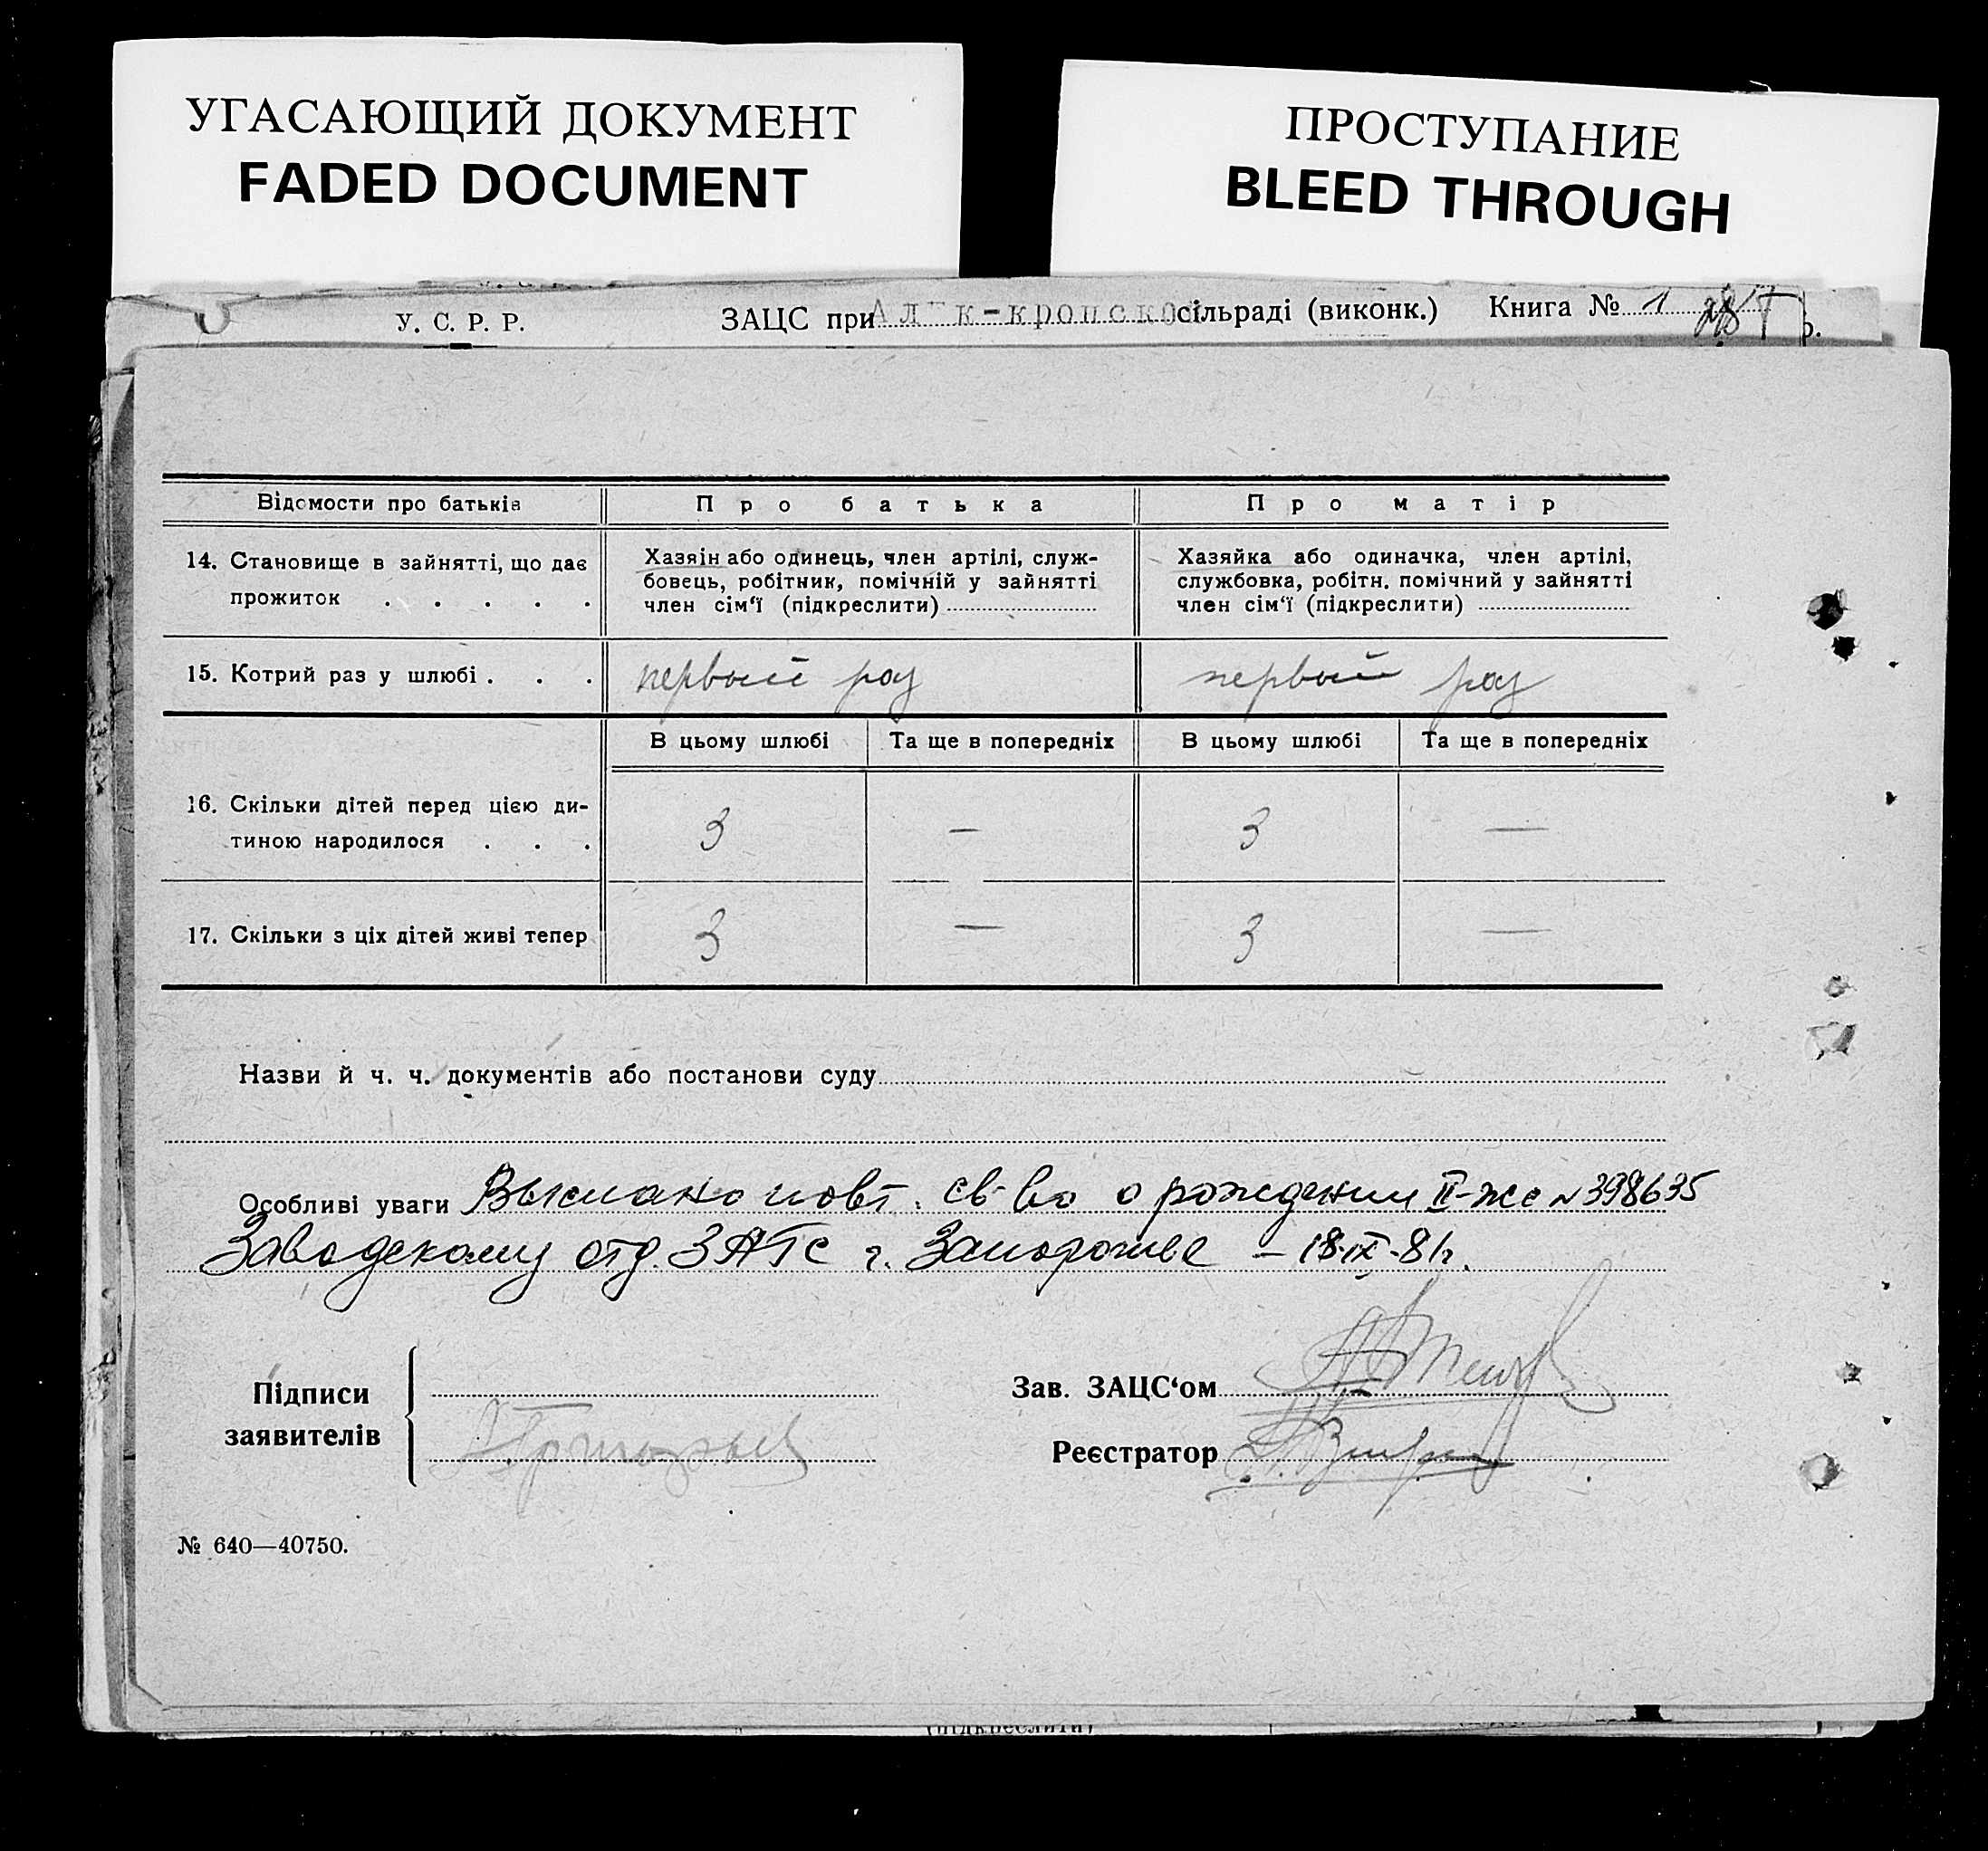 УГАСАЮЩИЙ ДОКУМЕНТ
FADED DOCUMENT
ПРОСТУПАНИЕ
BLEED THROUGH
У. С. Р. Р. ЗАЦС при сільраді (виконк.) Книга № 1
Відомости про батьків Про батька Про матір
14. Становище в зайнятті, що дає прожиток . . . . .
Хазяін або одинець, член артілі, служ-
бовець, робітник, помічній у зайнятті
член сім‘ї (підкреслити)
Хазяйка або одиначка, член артілі,
службовка, робітн. помічний у зайнятті
член сім‘ї (підкреслити)
15. Котрий раз у шлюбі . . . первый раз первый раз
В цьому шлюбі Та ще в попередніх В цьому шлюбі Та ще в попередніх
16. Скільки дітей перед цією ди-
тиною народилося . . . 3 — 3 —
17. Скільки з ціх дітей живі тепер 3 — 3 —
Назви й ч. ч. документів або постанови суду
Особливі уваги Выслано повт. св-во о рождении II-же № 398635
Заводскому отд. ЗАГС г. Запорожье – 18-IX-81г.
Підписи
заявителів
Зав. ЗАЦС‘ом
Реєстратор
№ 640—40750.
(підкреслити)